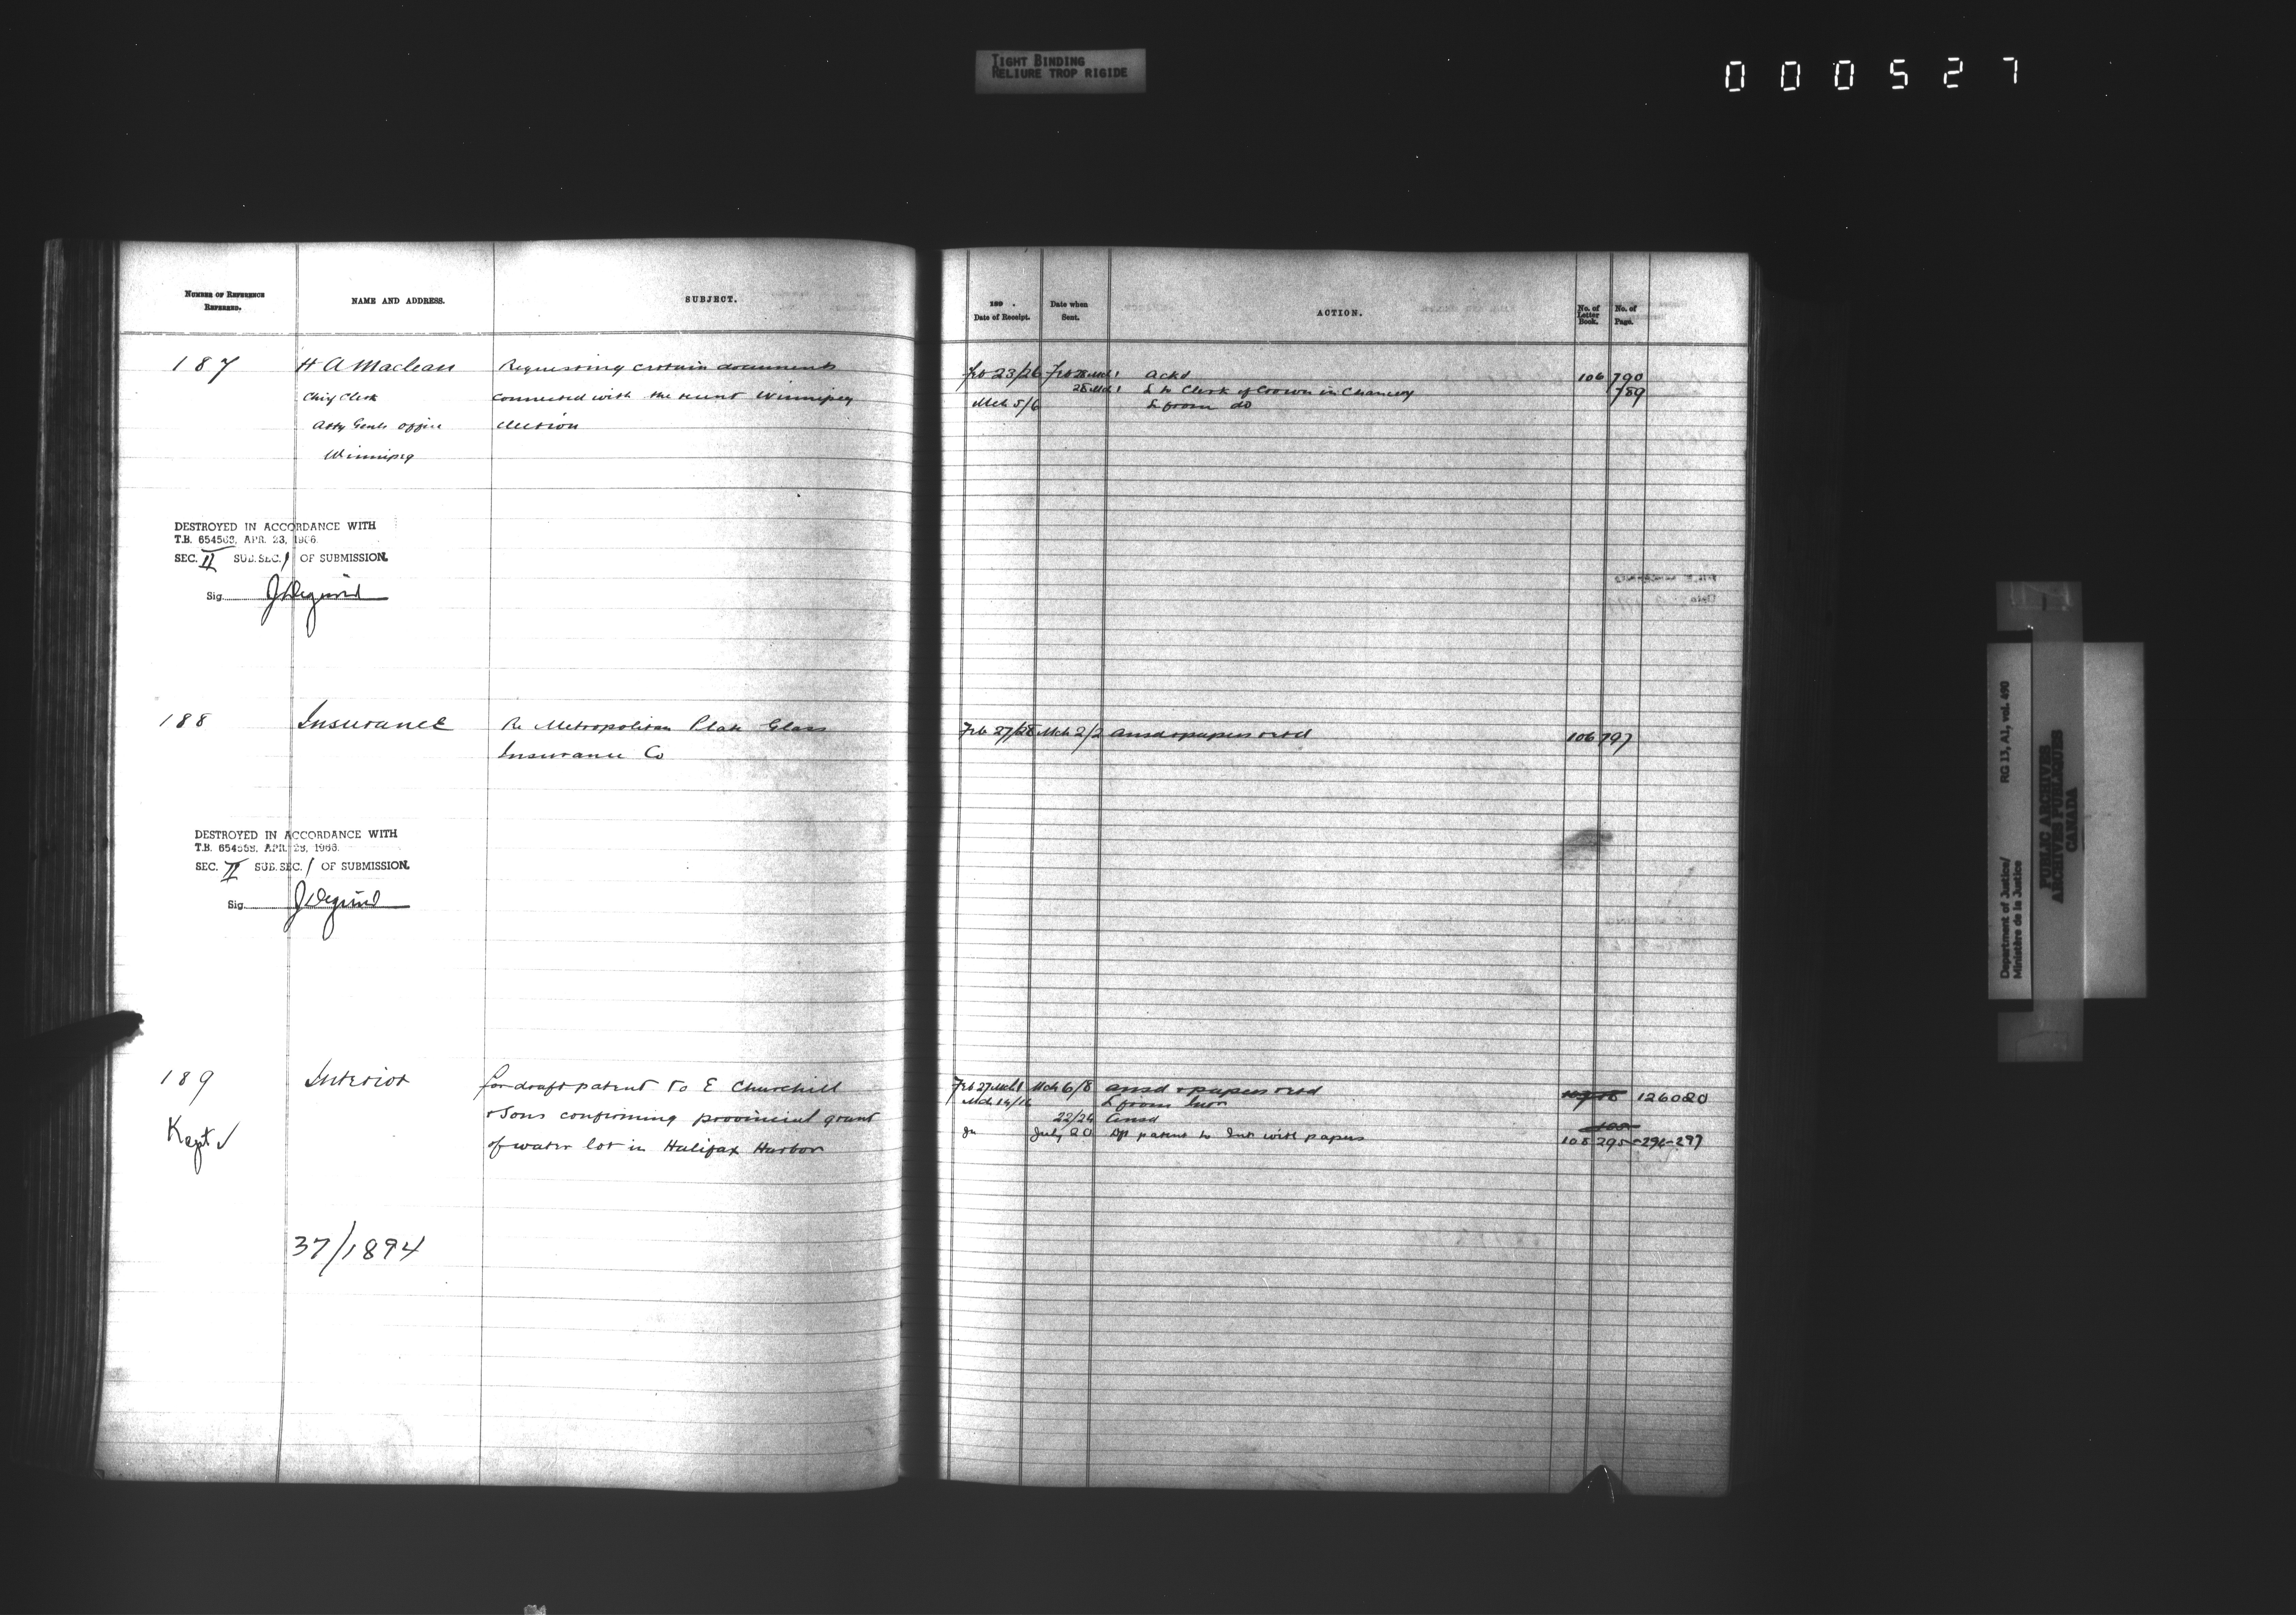 TIGHT BINDING
RELIURE TROP RIGIDE
000527
NUMBER OF REFERENCE
REFERRED.
NAME AND ADDRESS.
SUBJECT.
187
H A Maclean
Requesting certain documents
Chief Clerk
connected with the recent Winnipeg
Atty Genls office
election
Winnipeg
DESTROYED IN ACCORDANCE WITH
T.B. 654563, APR. 23, 1966.
SEC. II SUB.SEC. 1 OF SUBMISSION.
Sig.
188
Insurance
Re Metropolitan Plate Glass
Insurance Co
DESTROYED IN ACCORDANCE WITH
T.B. 654563, APR. 23, 1966.
SEC. II SUB.SEC. 1 OF SUBMISSION.
Sig.
189
Interior
for draft patent to E Churchill
& Sons confirming provincial grant
Kept ✓
of water lot in Halifax Harbor
37/1894
189 .
Date of Receipt.
Date when
Sent.
ACTION.
No. of
Letter
Book.
No. of
Page.
Feb 23/26 Feb 28 Mch 1 Ackd 106 790
28 Mch 1 L to Clerk of Crown in Chancery 789
Mch 5/6 L from do
Feb 27/28 Mch 2/2 ansd & papers retd 106 797
Feb 27 Mch 1 Mch 6/8 ansd & papers retd
L from
22/24 Ansd
July 20 Dft patent to Int with papers 108 295-296-297
Department of Justice/
Ministère de la Justice
RG 13, A1, vol. 490
PUBLIC ARCHIVES
ARCHIVES PUBLIQUES
CANADA